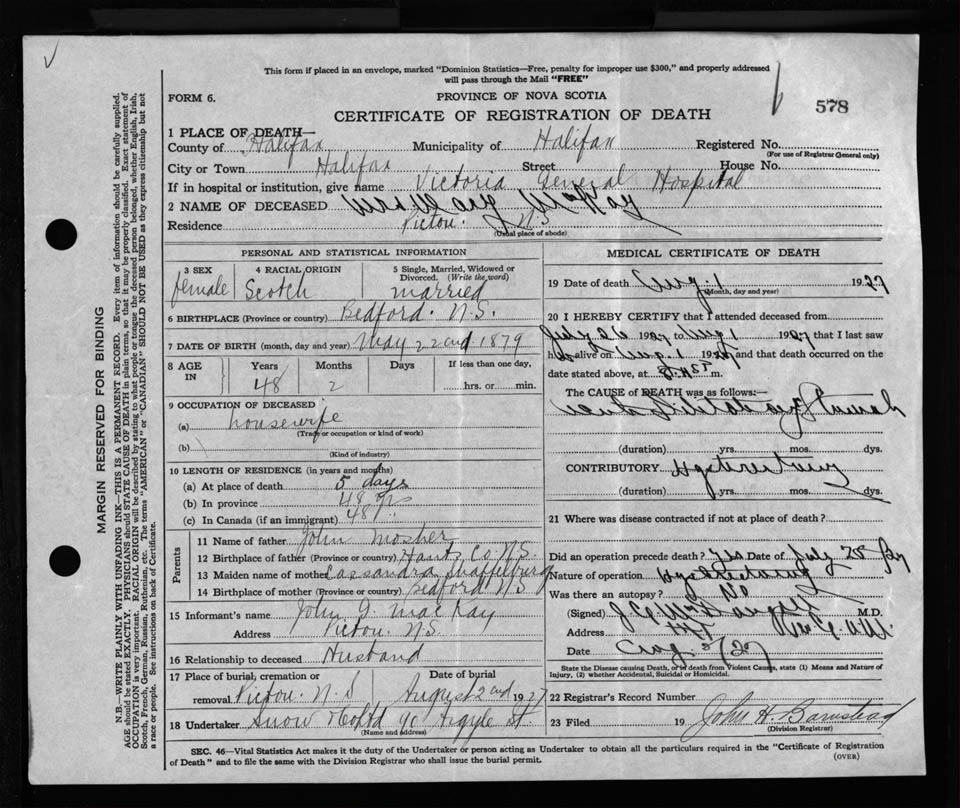 This form if placed in an envelope, marked "Dominion Statistics—Free, penalty for improper use $300," and properly addressed
will pass through the Mail "FREE"
FORM 6.
PROVINCE OF NOVA SCOTIA
578
CERTIFICATE OF REGISTRATION OF DEATH
1 PLACE OF DEATH—
County of Halifax Municipality of Halifax Registered No.
(For use of Registrar General only)
City or Town Halifax Street House No.
If in hospital or institution, give name Victoria General Hospital
2 NAME OF DECEASED Mrs Mary MacKay
Residence Pictou. N.S.
(Usual place of abode)
PERSONAL AND STATISTICAL INFORMATION
3 SEX
female
4 RACIAL ORIGIN
Scotch
5 Single, Married, Widowed or
Divorced. (Write the word)
married
6 BIRTHPLACE (Province or country) Bedford. N.S.
7 DATE OF BIRTH (month, day and year) May 22nd 1879
8 AGE IN
Years
48
Months
2
Days
If less than one day,
hrs. or min.
9 OCCUPATION OF DECEASED
(a) housewife
(Trade or occupation or kind of work)
(b)
(Kind of industry)
10 LENGTH OF RESIDENCE (in years and months)
(a) At place of death 5 days
(b) In province 48 yrs
(c) In Canada (if an immigrant) 48
Parents
11 Name of father John Mosher
12 Birthplace of father (Province or country) Hants Co. N.S.
13 Maiden name of mother Cassandra
14 Birthplace of mother (Province or country) Bedford N.S.
15 Informant's name John G. MacKay
Address Pictou. N.S.
16 Relationship to deceased Husband
17 Place of burial, cremation or
removal Pictou. N.S
Date of burial
August 2nd 1927
18 Undertaker Snow & Co Ltd 90 Argyle St.
(Name and address)
MEDICAL CERTIFICATE OF DEATH
19 Date of death Aug. 1 1927
(Month, day and year)
20 I HEREBY CERTIFY that I attended deceased from
July 26 1927 to Aug 1 1927 that I last saw
h alive on Aug. 1 1927 and that death occurred on the
date stated above, at m.
The CAUSE OF DEATH was as follows:—
(duration) yrs. mos. dys.
CONTRIBUTORY Hysterectomy
(duration) yrs. mos. dys.
21 Where was disease contracted if not at place of death?
Did an operation precede death? Yes Date of July 28/27
Nature of operation Hysterectomy
Was there an autopsy? No
(Signed) M.D.
Address
Date Aug 2/27
State the Disease causing Death, or in death from Violent Causes, state (1) Means and Nature of
Injury, (2) whether Accidental, Suicidal or Homicidal.
22 Registrar's Record Number
23 Filed 19 John H. Barnstead
(Division Registrar)
SEC. 46—Vital Statistics Act makes it the duty of the Undertaker or person acting as Undertaker to obtain all the particulars required in the "Certificate of Registration
of Death" and to file same with the Division Registrar who shall issue the burial permit.
(OVER)
MARGIN RESERVED FOR BINDING
N.B.—WRITE PLAINLY WITH UNFADING INK—THIS IS A PERMANENT RECORD. Every item of information should be carefully supplied.
AGE should be stated EXACTLY. PHYSICIANS should STATE CAUSE OF DEATH in plain terms, so that it may be properly classified. Exact statement of
OCCUPATION is very important. RACIAL ORIGIN will be described by stating to what people or tongue the deceased person belonged, whether English, Irish,
Scotch, French, German, Russian, Ruthenian, etc. The terms "AMERICAN" or "CANADIAN" SHOULD NOT BE USED as they express citizenship but not
a race or people. See instructions on back of Certificate.